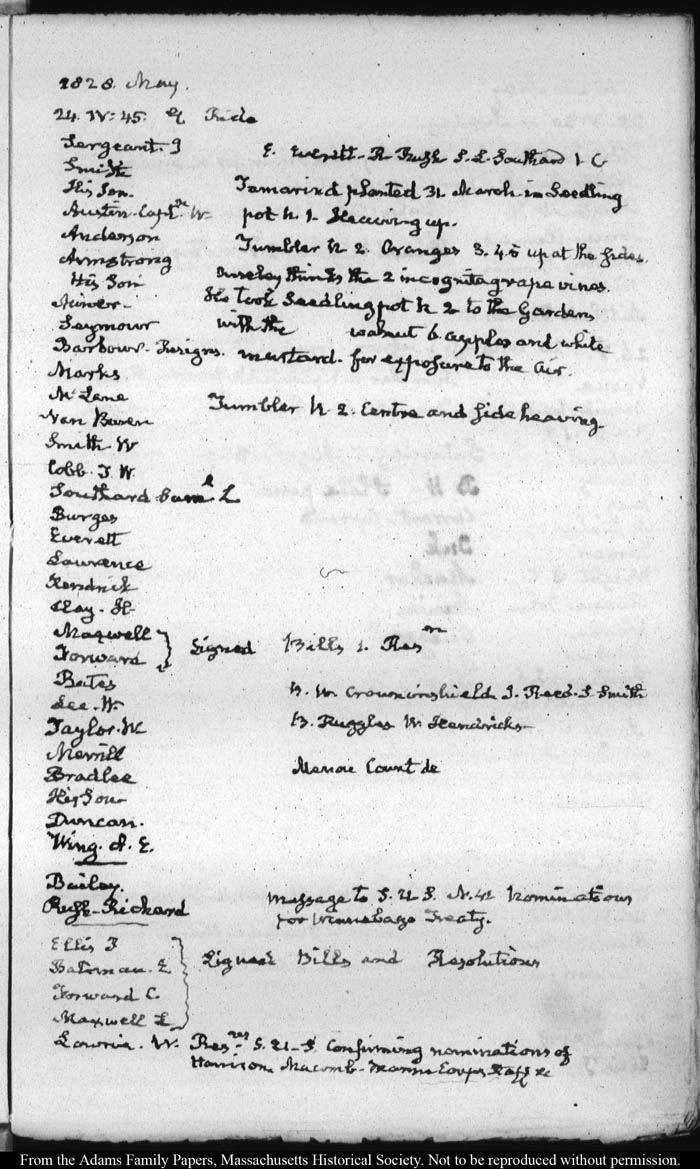 1828. May.
24. IV: 45. Ride
Sergeant. J
E. Everett - R Rush S. L. Southard
Smith
His Son.
Tamarind planted 31 March in Seedling
Austin Capt.n W.
pot N. 1. Heaving up.
Anderson
Tumbler N 2. Oranges 3. 4. 5 up at the sides.
Armstrong
His Son
Ouseley thinks the 2 incognita grape vines.
Miner -
His Took Seedling pot N 2 to the Garden
Seymour
with the walnut 6 apples and white
Barbour - Resigns.
mustard for exposure to the air.
Marks
McLane
Tumbler N 2. Centre and side heaving
Van Buren
Smith W
Cobb. T. W.
Southard Saml L
Burges
Everett
Lawrence
Kendrick
Clay. H.
Maxwell
Forward
Signed Bills & Reson
Bates
Lee. W.
B. W. Crowninshield J. Reed. S Smith
Taylor. W.
B. Ruggles W. Hendricks
Merrill
Menou Count de
Bradlee
His Son
Duncan.
Wing. A. E.
Bailey.
Rush - Richard
Message to S. U S. N. 42 Nominations
for Winnebago Treaty.
Ellis P
Bateman. E
Forward C.
Maxwell L
Signed Bills and Resolutions
Lowrie. W. Resns S. U. S. Confirming nominations of
Harrison Macomb - Marine Corps Staff &c
From the Adams Family Papers, Massachusetts Historical Society. Not to be reproduced without permission.